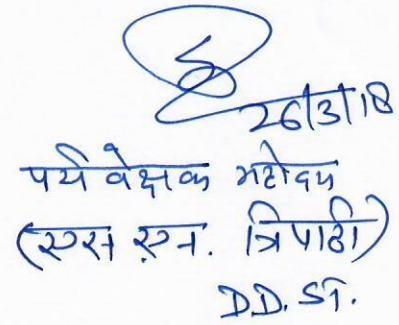 26/3/18
पर्यवेक्षक महोदय
(एस एन. त्रिपाठी)
D.D. ST.